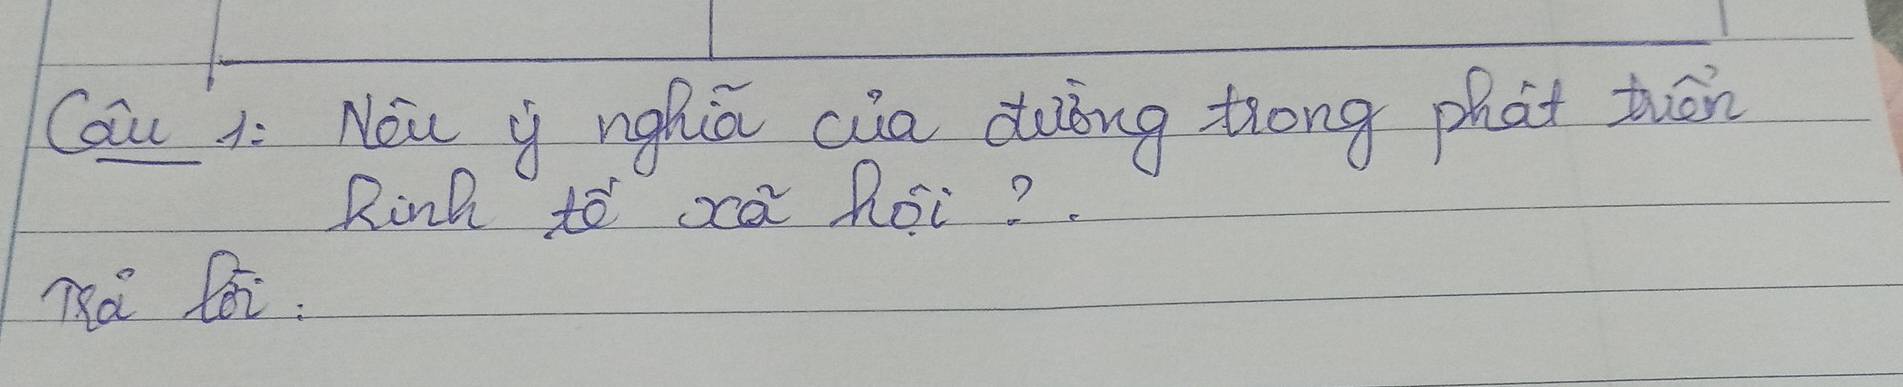 Câu 1: Nêu ý nghĩa của đường trong phát triển
kinh tế xã hội ?.
Trả lời :